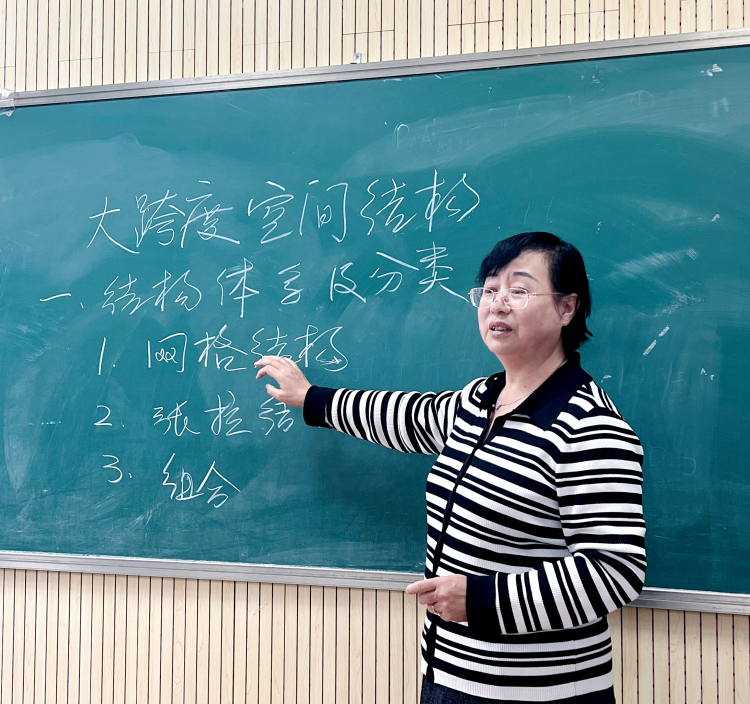 大跨度空间结构
一、结构体系及分类
1. 网格结构
2. 张拉结
3. 组合